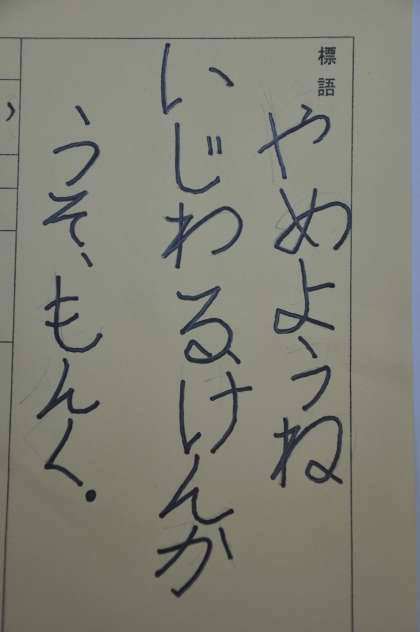 標語
やめようね
いじわるけんか
うそ、もんく。